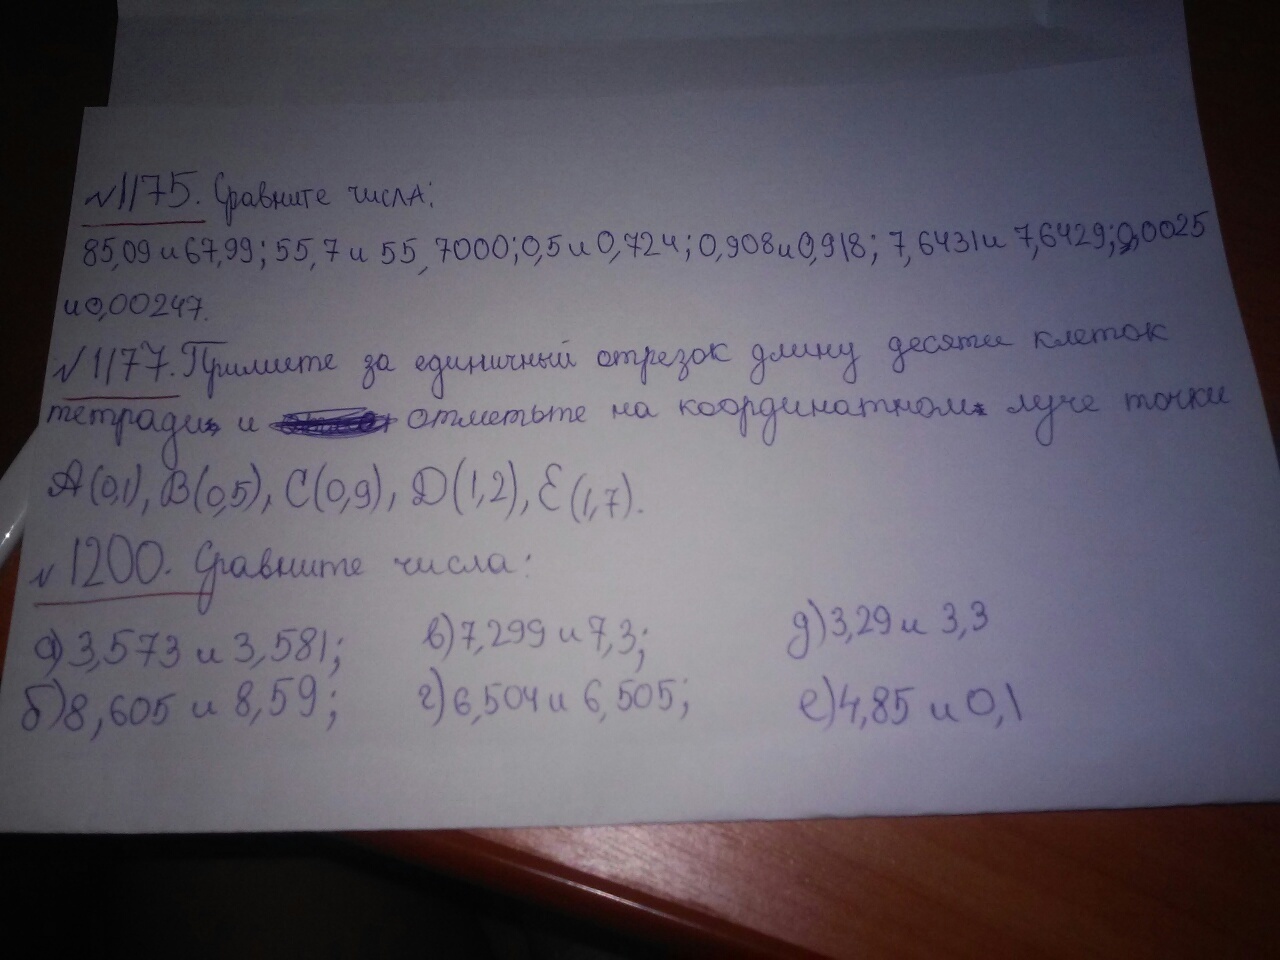 №1175. Сравните числа:
85,09 и 67,99; 55,7 и 55,7000; 0,5 и 0,724; 0,908 и 0,918; 7,6431 и 7,6429; 0,0025
и 0,00247.
№1177. Примите за единичный отрезок длину десяти клеток
тетради и отметьте на координатном луче точки
A(0,1), B(0,5), C(0,9), D(1,2), E(1,7).
№1200. Сравните числа:
а) 3,573 и 3,581; в) 7,299 и 7,3; д) 3,29 и 3,3
б) 8,605 и 8,59; г) 6,504 и 6,505; е) 4,85 и 0,1